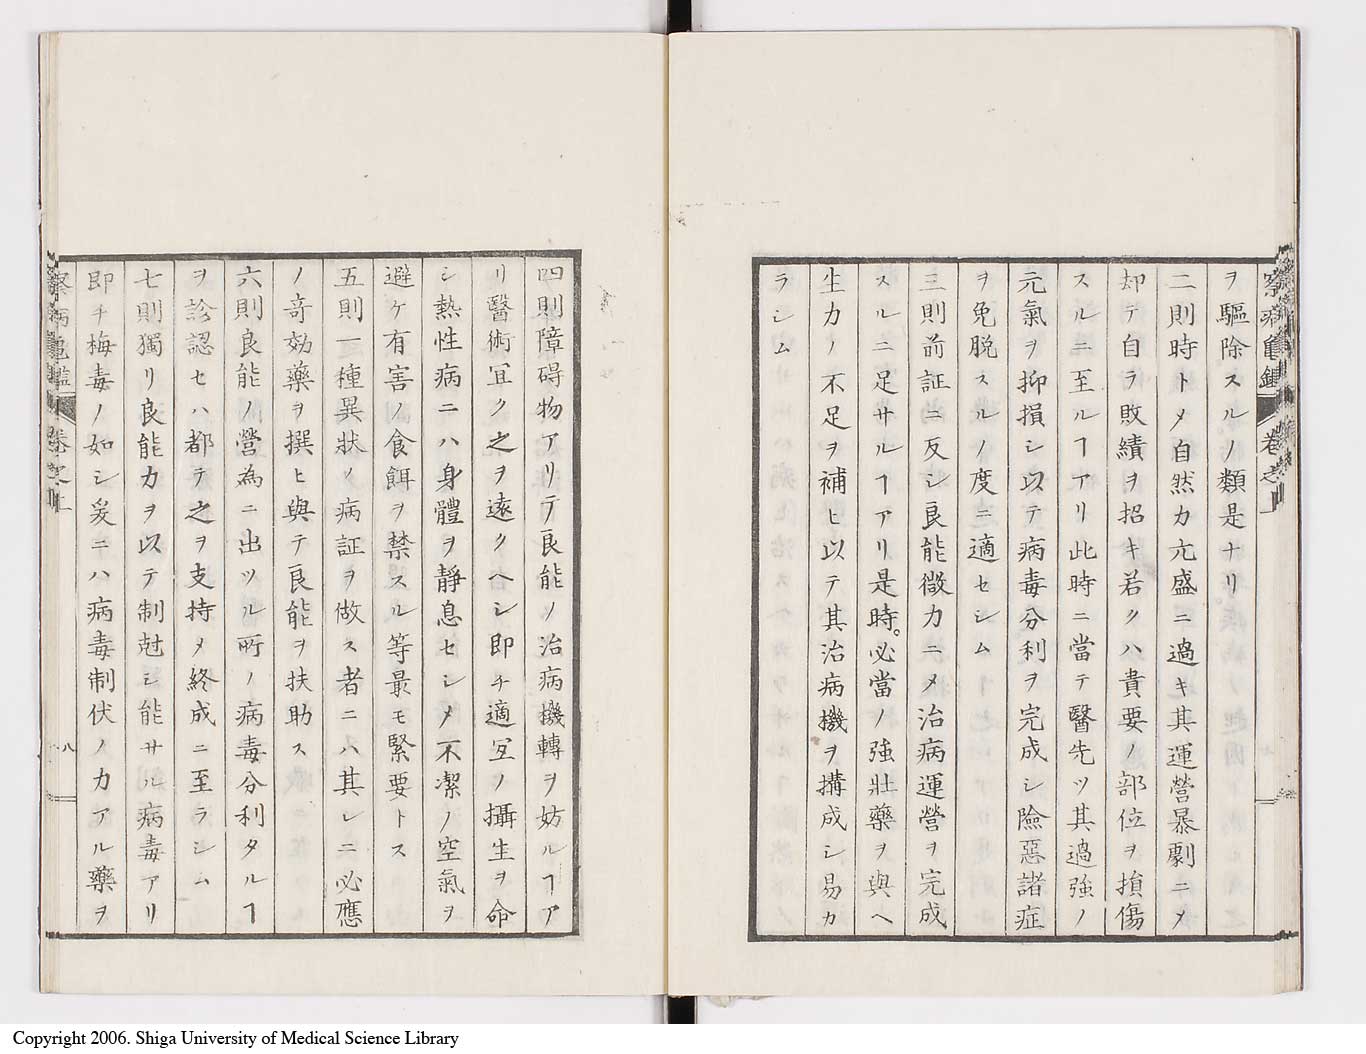 ヲ驅除スルノ類是ナリ
二則時トメ自然力亢盛ニ過キ其運營暴劇ニメ
却テ自ラ敗績ヲ招キ若クハ貴要ノ部位ヲ損傷
スルニ至ルヿアリ此時ニ當テ醫先ツ其過強ノ
元氣ヲ抑損シ以テ病毒分利ヲ完成シ險惡諸症
ヲ免脱スルノ度ニ適セシム
三則前証ニ反シ良能微力ニメ治病運營ヲ完成
スルニ足サルヿアリ是時。必當ノ強壯藥ヲ與ヘ
生力ノ不足ヲ補ヒ以テ其治病機ヲ搆成シ易カ
ラシム
四則障碍物アリテ良能ノ治病機轉ヲ妨ルヿア
リ醫術冝ク之ヲ遠クヘシ即チ適冝ノ攝生ヲ命
シ熱性病ニハ身體ヲ靜息セシメ不潔ノ空氣ヲ
避ケ有害ノ食餌ヲ禁スル等最モ緊要トス
五則一種異狀ノ病証ヲ做ス者ニハ其レニ必應
ノ竒効藥ヲ撰ヒ與テ良能ヲ扶助ス
六則良能ノ營為ニ出ツル所ノ病毒分利タルヿ
ヲ診認セハ都テ之ヲ支持メ終成ニ至ラシム
七則獨リ良能力ヲ以テ制尅シ能サル病毒アリ
即チ梅毒ノ如シ爰ニハ病毒制伏ノ力アル藥ヲ
察病龜鑑 卷之上
八
Copyright 2006. Shiga University of Medical Science Library